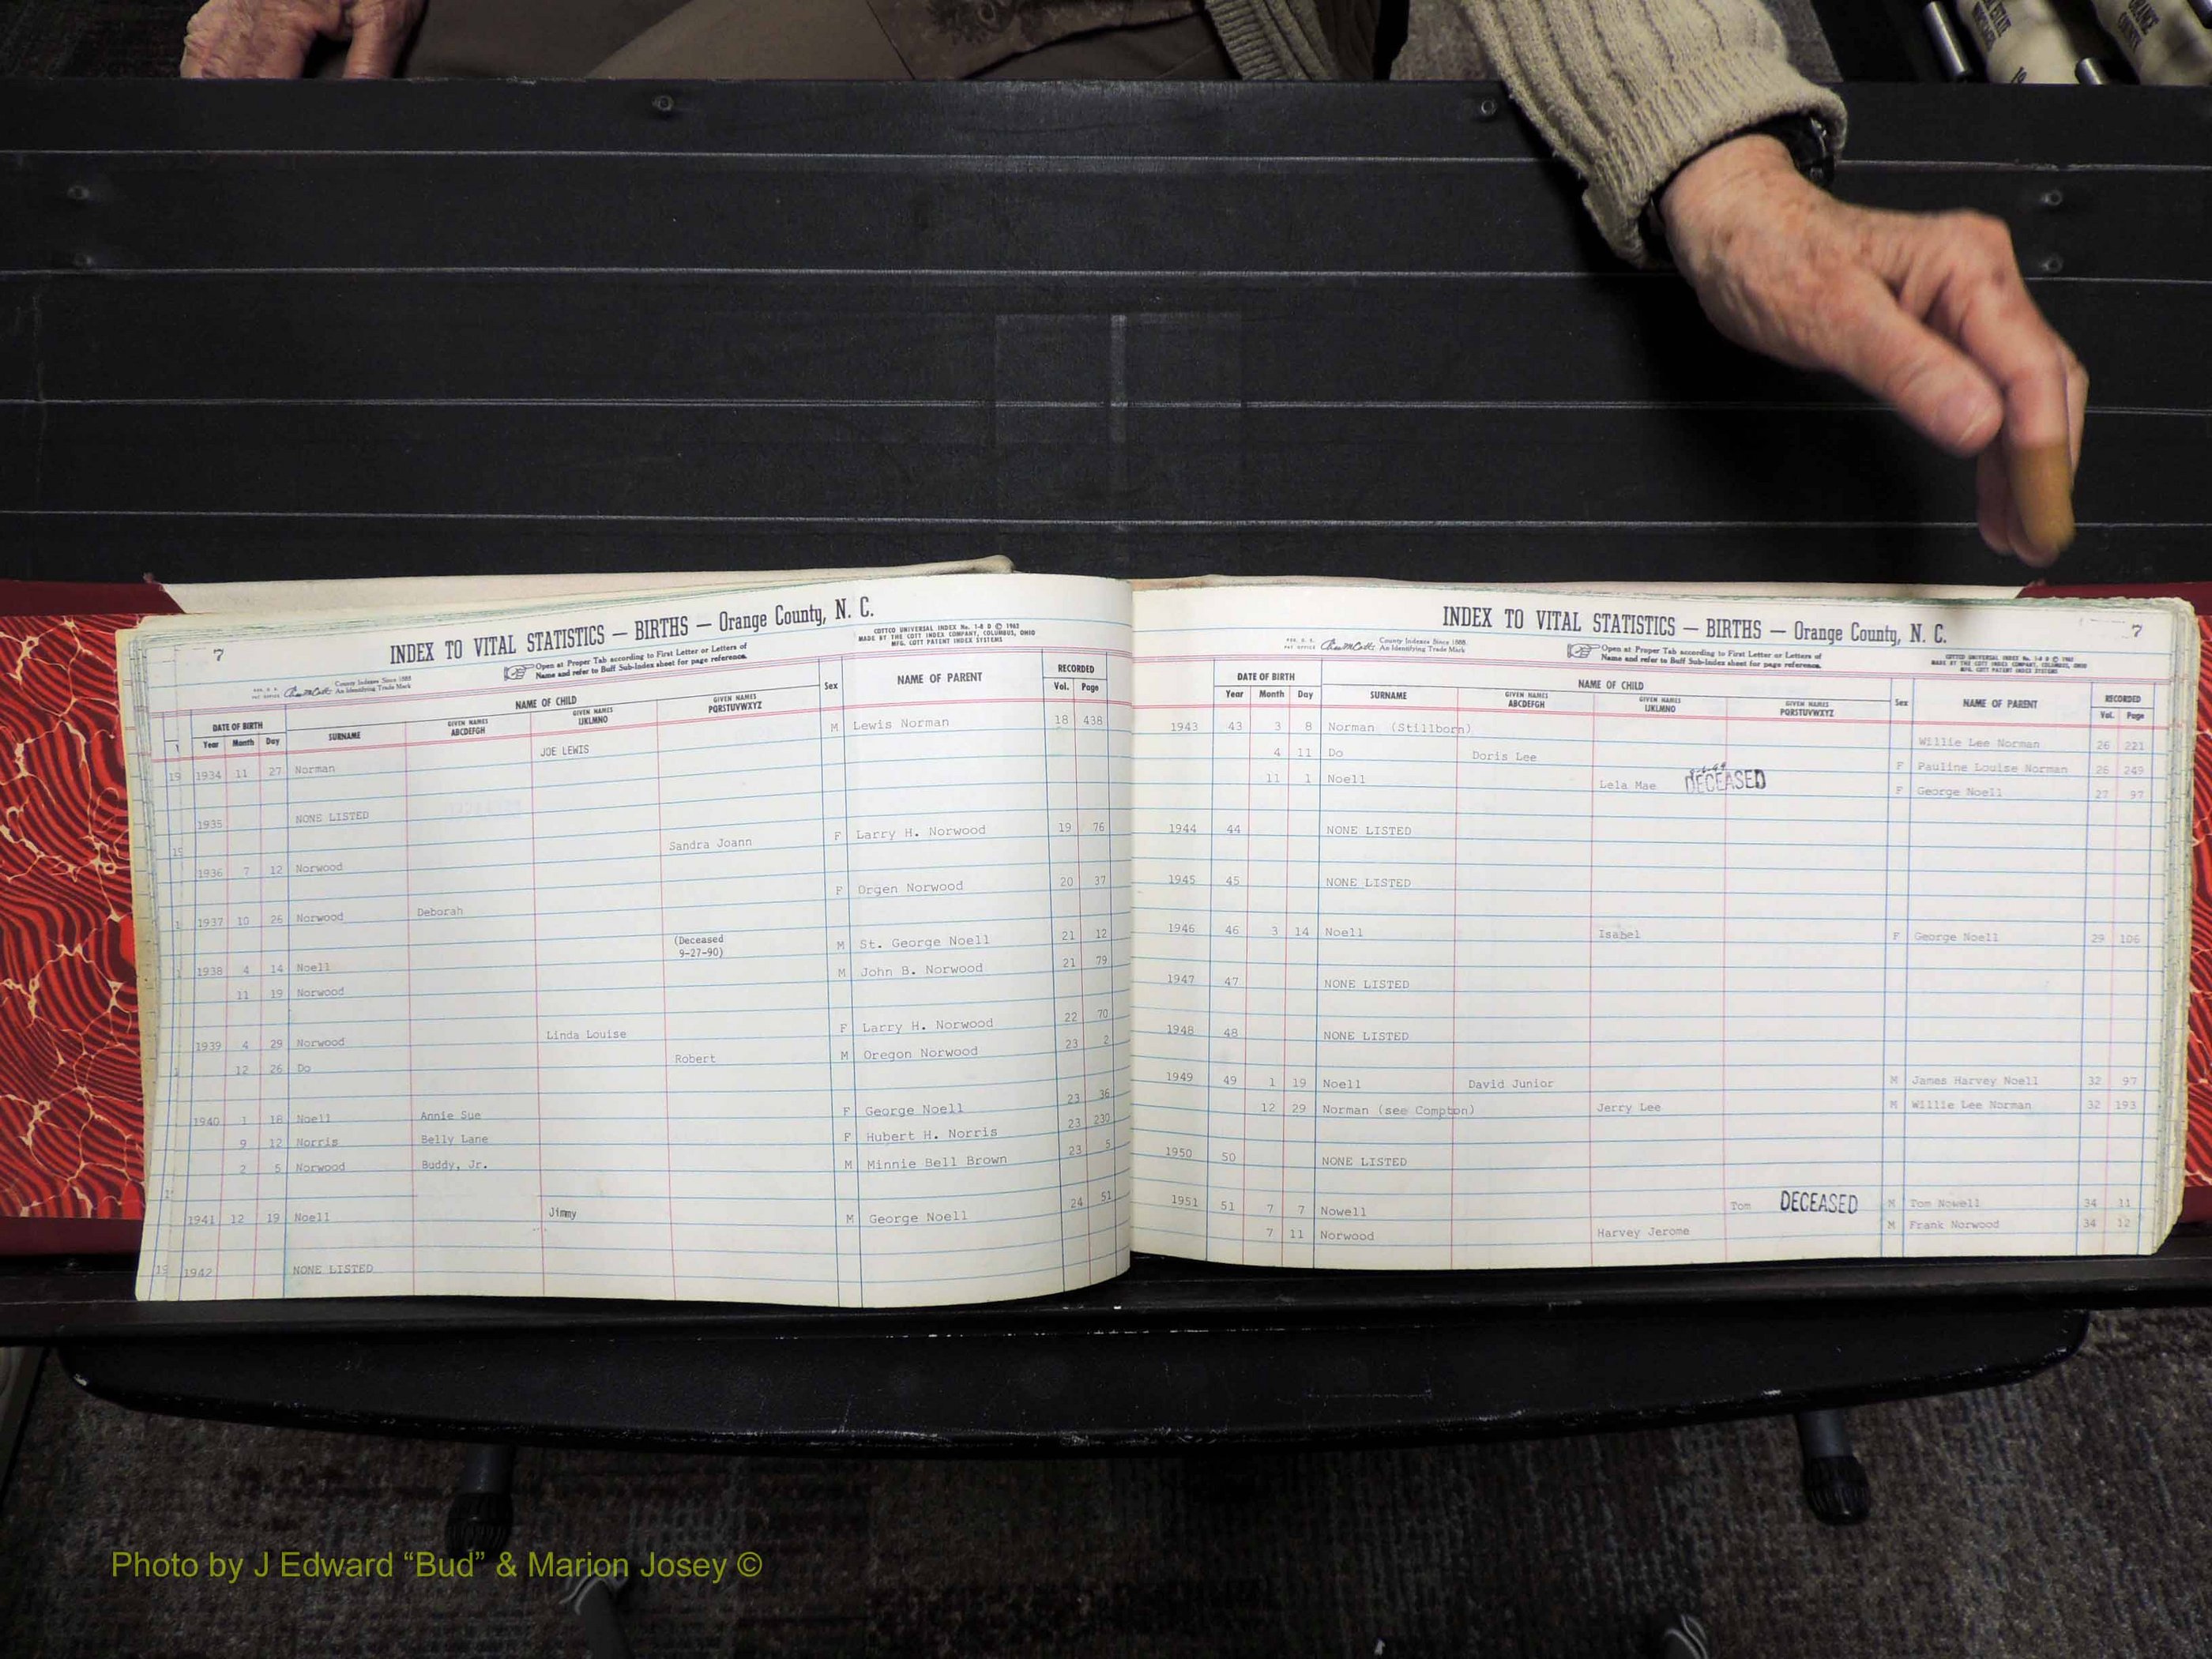 ORANGE
COUNTY
7
INDEX TO VITAL STATISTICS — BIRTHS — Orange County, N. C.
COTTCO UNIVERSAL INDEX No. 1-8 D © 1962
MADE BY THE COTT INDEX COMPANY, COLUMBUS, OHIO
MFG. COTT PATENT INDEX SYSTEMS
County Indexes Since 1888
An Identifying Trade Mark
Open at Proper Tab according to First Letter or Letters of
Name and refer to Buff Sub-Index sheet for page reference.
DATE OF BIRTH NAME OF CHILD Sex NAME OF PARENT RECORDED
Year Month Day SURNAME GIVEN NAMES ABCDEFGH GIVEN NAMES IJKLMNO GIVEN NAMES PQRSTUVWXYZ Vol. Page
1934 11 27 Norman JOE LEWIS M Lewis Norman 18 438
1935 NONE LISTED
1936 7 12 Norwood Sandra Joann F Larry H. Norwood 19 76
1937 10 26 Norwood Deborah F Orgen Norwood 20 37
1938 4 14 Noell (Deceased 9-27-90) M St. George Noell 21 12
11 19 Norwood M John B. Norwood 21 79
1939 4 29 Norwood Linda Louise F Larry H. Norwood 22 70
12 26 Do Robert M Oregon Norwood 23 2
1940 1 18 Noell Annie Sue F George Noell 23 36
9 12 Norris Belly Lane F Hubert H. Norris 23 230
2 5 Norwood Buddy, Jr. M Minnie Bell Brown 23 5
1941 12 19 Noell Jimmy M George Noell 24 51
1942 NONE LISTED
INDEX TO VITAL STATISTICS — BIRTHS — Orange County, N. C.
7
County Indexes Since 1888
An Identifying Trade Mark
Open at Proper Tab according to First Letter or Letters of
Name and refer to Buff Sub-Index sheet for page reference.
COTTCO UNIVERSAL INDEX No. 1-8 D © 1962
MADE BY THE COTT INDEX COMPANY, COLUMBUS, OHIO
MFG. COTT PATENT INDEX SYSTEMS
DATE OF BIRTH NAME OF CHILD Sex NAME OF PARENT RECORDED
Year Month Day SURNAME GIVEN NAMES ABCDEFGH GIVEN NAMES IJKLMNO GIVEN NAMES PQRSTUVWXYZ Vol. Page
1943 43 3 8 Norman (Stillborn) Willie Lee Norman 26 221
4 11 Do Doris Lee F Pauline Louise Norman 26 249
11 1 Noell Lela Mae DECEASED F George Noell 27 97
1944 44 NONE LISTED
1945 45 NONE LISTED
1946 46 3 14 Noell Isabel F George Noell 29 106
1947 47 NONE LISTED
1948 48 NONE LISTED
1949 49 1 19 Noell David Junior M James Harvey Noell 32 97
12 29 Norman (see Compton) Jerry Lee M Willie Lee Norman 32 193
1950 50 NONE LISTED
1951 51 7 7 Nowell Tom DECEASED M Tom Nowell 34 11
7 11 Norwood Harvey Jerome M Frank Norwood 34 12
Photo by J Edward “Bud” & Marion Josey ©